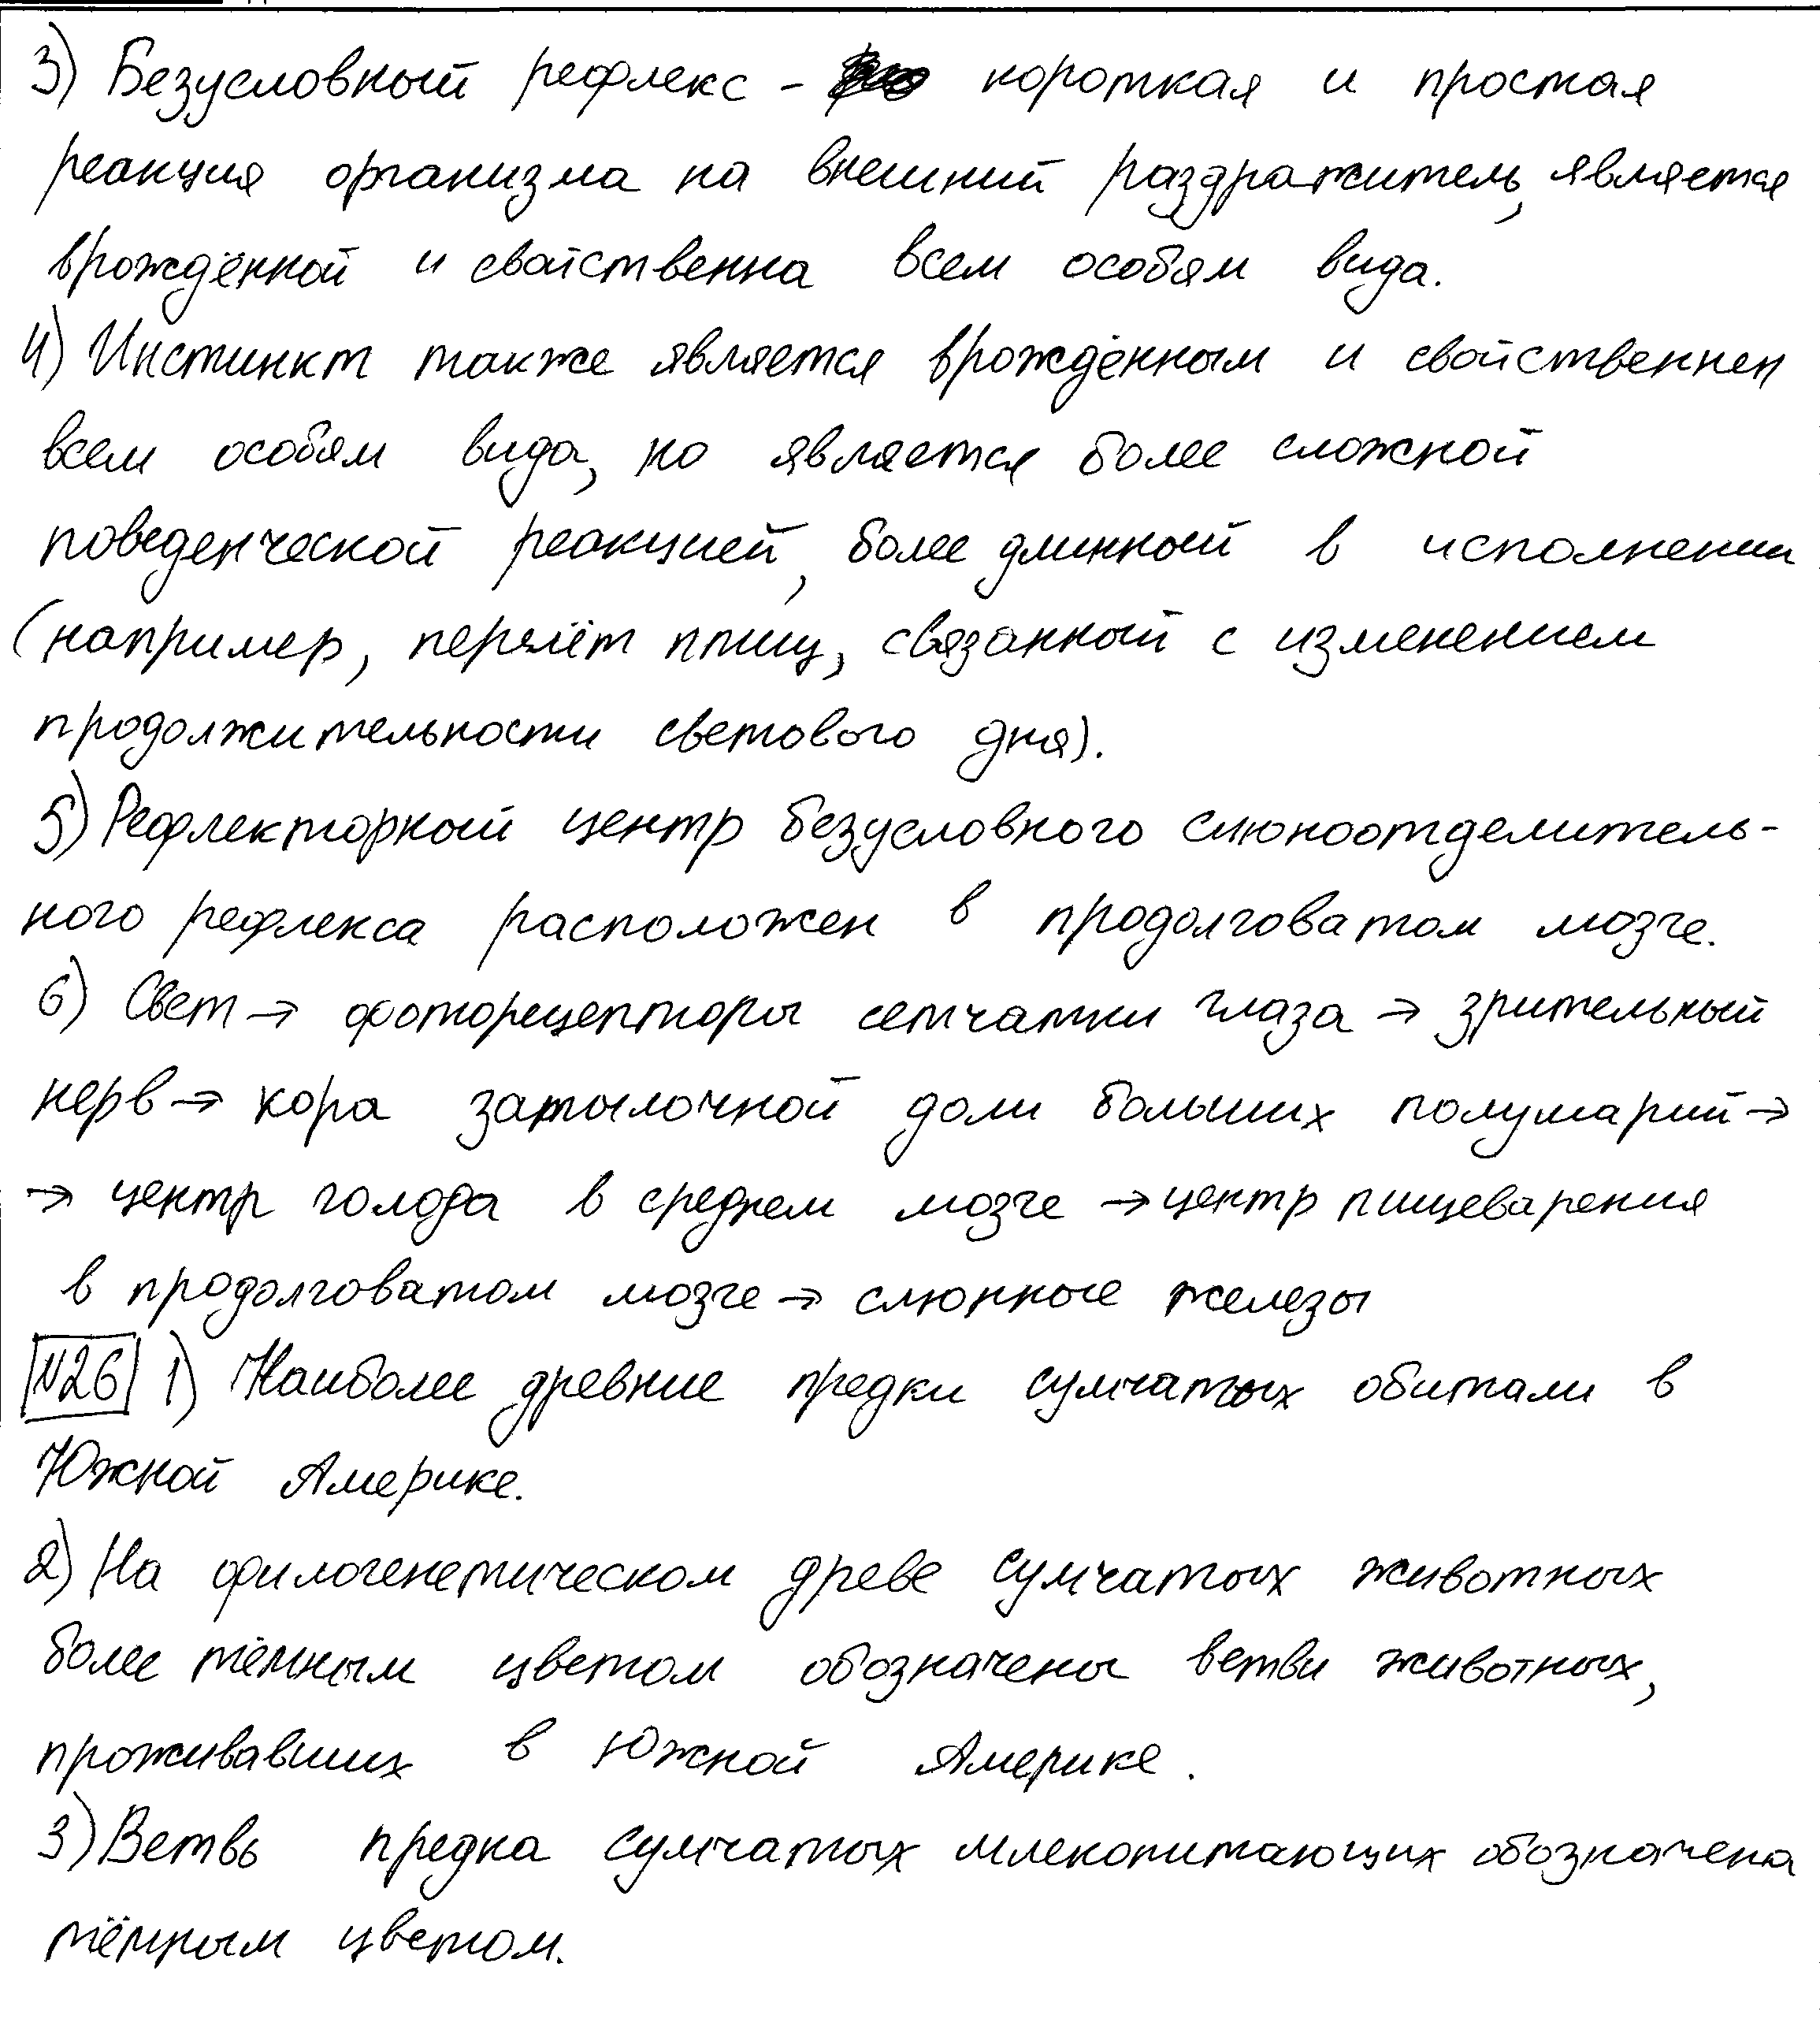 3) Безусловный рефлекс - короткая и простая
реакция организма на внешний раздражитель, является
врождённой и свойственна всем особям вида.
4) Инстинкт также является врождённым и свойственнен
всем особям вида, но является более сложной
поведенческой реакцией, более длинный в исполнении
(например, перелёт птиц, связанный с изменением
продолжительности светового дня).
5) Рефлекторный центр безусловного слюноотделитель-
ного рефлекса расположен в продолговатом мозге.
6) Свет → фоторецепторы сетчатки глаза → зрительный
нерв → кора затылочной доли больших полушарий →
→ центр голода в среднем мозге → центр пищеварения
в продолговатом мозге → слюнные железы
№26 1) Наиболее древние предки сумчатых обитали в
Южной Америке.
2) На филогенетическом древе сумчатых животных
более тёмным цветом обозначены ветви животных,
проживавших в Южной Америке.
3) Ветвь предка сумчатых млекопитающих обозначена
тёмным цветом.